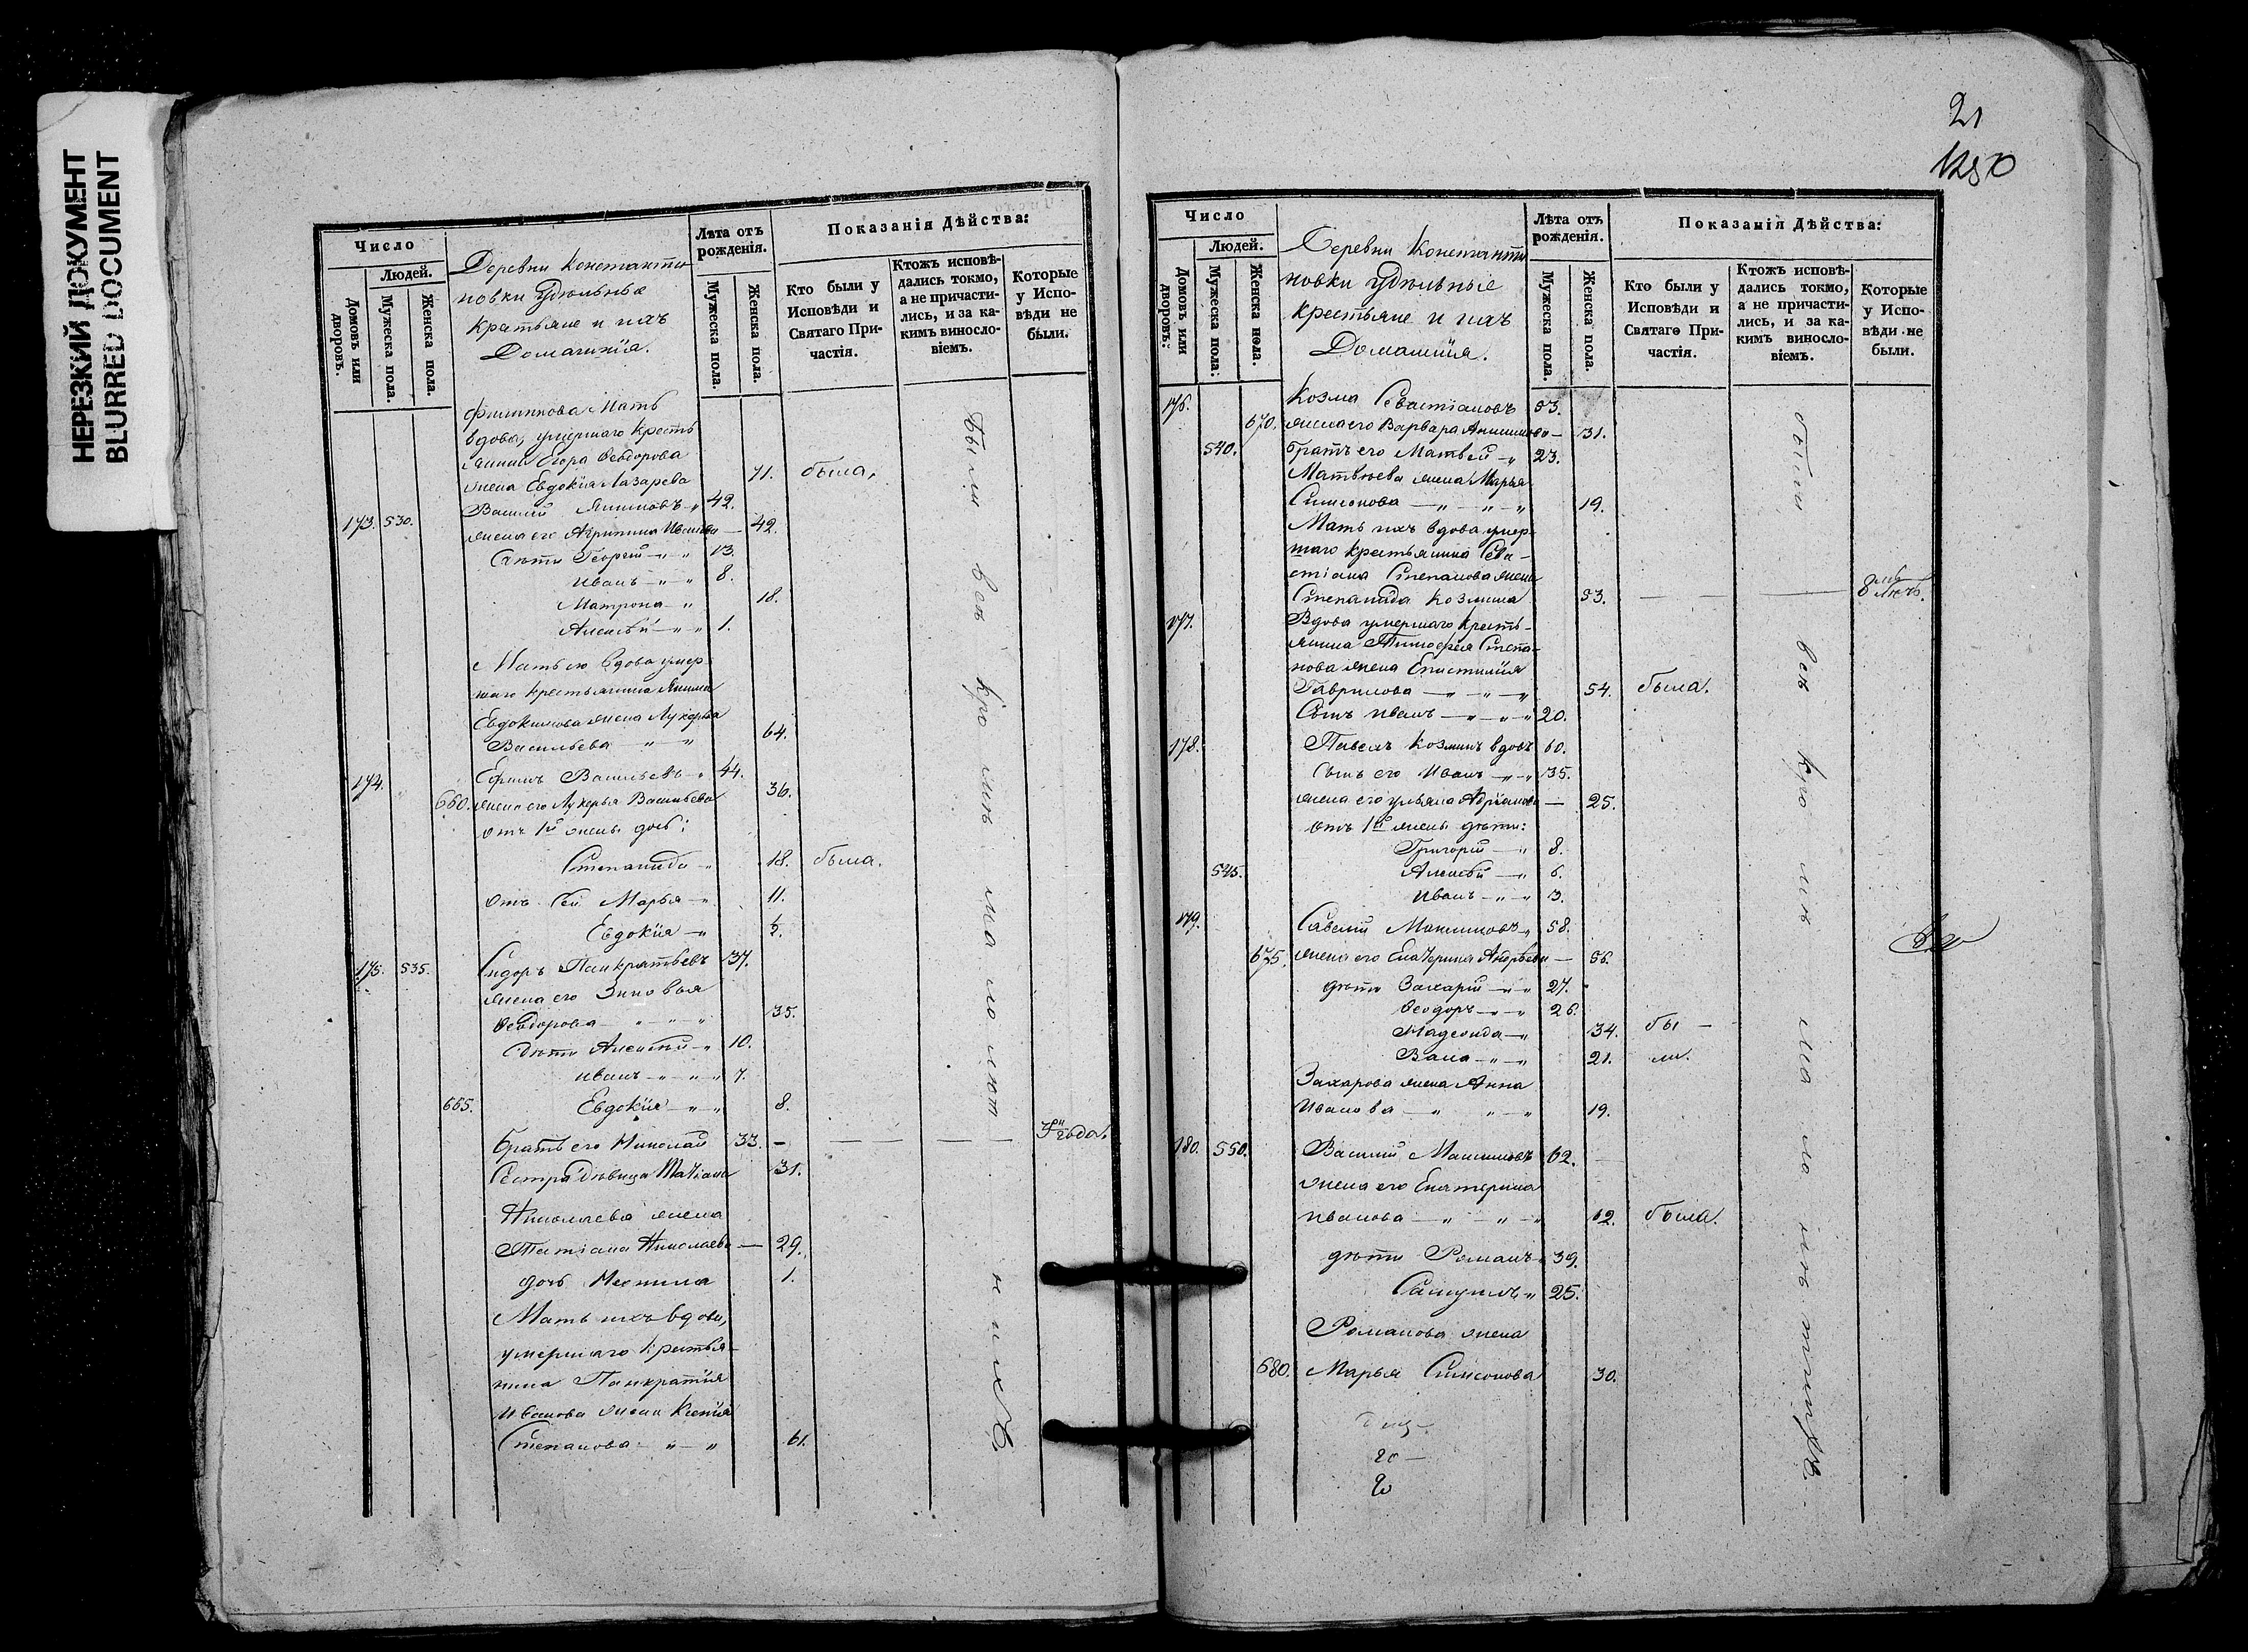 НЕРЕЗКИЙ ДОКУМЕНТ
BLURRED DOCUMENT
Число
Людей.
Домовъ или дворовъ.
Мужеска пола.
Женска пола.
Деревни Константи-
новки Удѣльные
крестьяне и ихъ
Домашнiя.
Лѣта отъ рожденія.
Мужеска пола.
Женска пола.
Показанія Дѣйства:
Кто были у Исповѣди и Святаго Причастія.
Ктожъ исповѣдались токмо, а не причастились, и за какимъ винословіемъ.
Которые у Исповѣди не были.
Филиппова Мать
вдова, умершаго кресть
янина Егора Ѳеодорова
жена Евдокiя Лазарева 71. была.
173. 530. Василий Якимовъ 42.
жена его Агрипина Иванова — 42.
Дѣти Георгій 13.
Иванъ 8.
Матрона 18.
Алексѣй 1.
Мать его вдова умер
шаго крестьянина Якима
Евдокимова жена Лукерья
Васильева 64.
174. Ефимъ Васильевъ 44.
660. жена его Лукерья Васильева 36.
отъ 1й жены дочь:
Степанида 18. была.
отъ сей Марья 11.
Евдокiя 2.
175. 535. Сидоръ Панкратьевъ 37.
жена его Зиновья
Ѳеодорова 35.
Дѣти Алексѣй 10.
Иванъ 7.
665. Евдокiя 8.
братъ его Николай 33. — года.
Сестра дѣвица Татiана 31.
Николаева жена
Татiана Николаева — 29.
дочь 1.
Мать ихъ вдова,
умершаго крестья-
нина Панкратiя
Иванова жена Ксенiя
Степанова 61.
были всѣ кро мѣ ма ло лѣт н ихъ
21
1280
Число
Людей.
Домовъ или дворовъ.
Мужеска пола:
Женска пола.
Деревни Константи
новки Удѣльные
крестьяне и ихъ
Домашнiя.
Лѣта отъ рожденія.
Мужеска пола.
Женска пола.
Показанія Дѣйства:
Кто были у Исповѣди и Святаго Причастія.
Ктожъ исповѣдались токмо, а не причастились, и за какимъ винословіемъ.
Которые у Исповѣди не были.
176. Козма Севастiановъ 33.
670. жена его Варвара Анисимова — 31.
540. братъ его Матвей 23.
Матвѣева жена Марья
Симеонова 19.
Мать ихъ вдова умер-
шаго крестьянина Сева-
стiана Степанова жена
Степанида Козмина 53. — 8 лѣтъ.
177. Вдова умершаго кресть-
янина Тимофея Степа-
нова жена Епистимiя
Гаврилова 54. была.
Сынъ Иванъ 20.
178. Павелъ Козминъ вдовъ 60.
Сынъ его Иванъ 35.
жена его Ульяна Адрiанова — 25.
отъ 1й жены дѣти:
Григорiй 8.
545. Алексѣй 6.
Иванъ 3.
179. Савелiй Максимовъ 58.
675. жена его Екатерина Андрѣева — 56.
дѣти Захарiй 27.
Ѳеодоръ 26.
34. бы-
21. ли.
Захарова жена Анна
Иванова 19.
180. 550. Василiй Максимовъ 62.
жена его Екатерина
Иванова 62. была.
дѣти Романъ 39.
Самуилъ 25.
Романова жена
680. Марья Симеонова 30.
были всѣ кро мѣ ма ло лѣтнихъ.